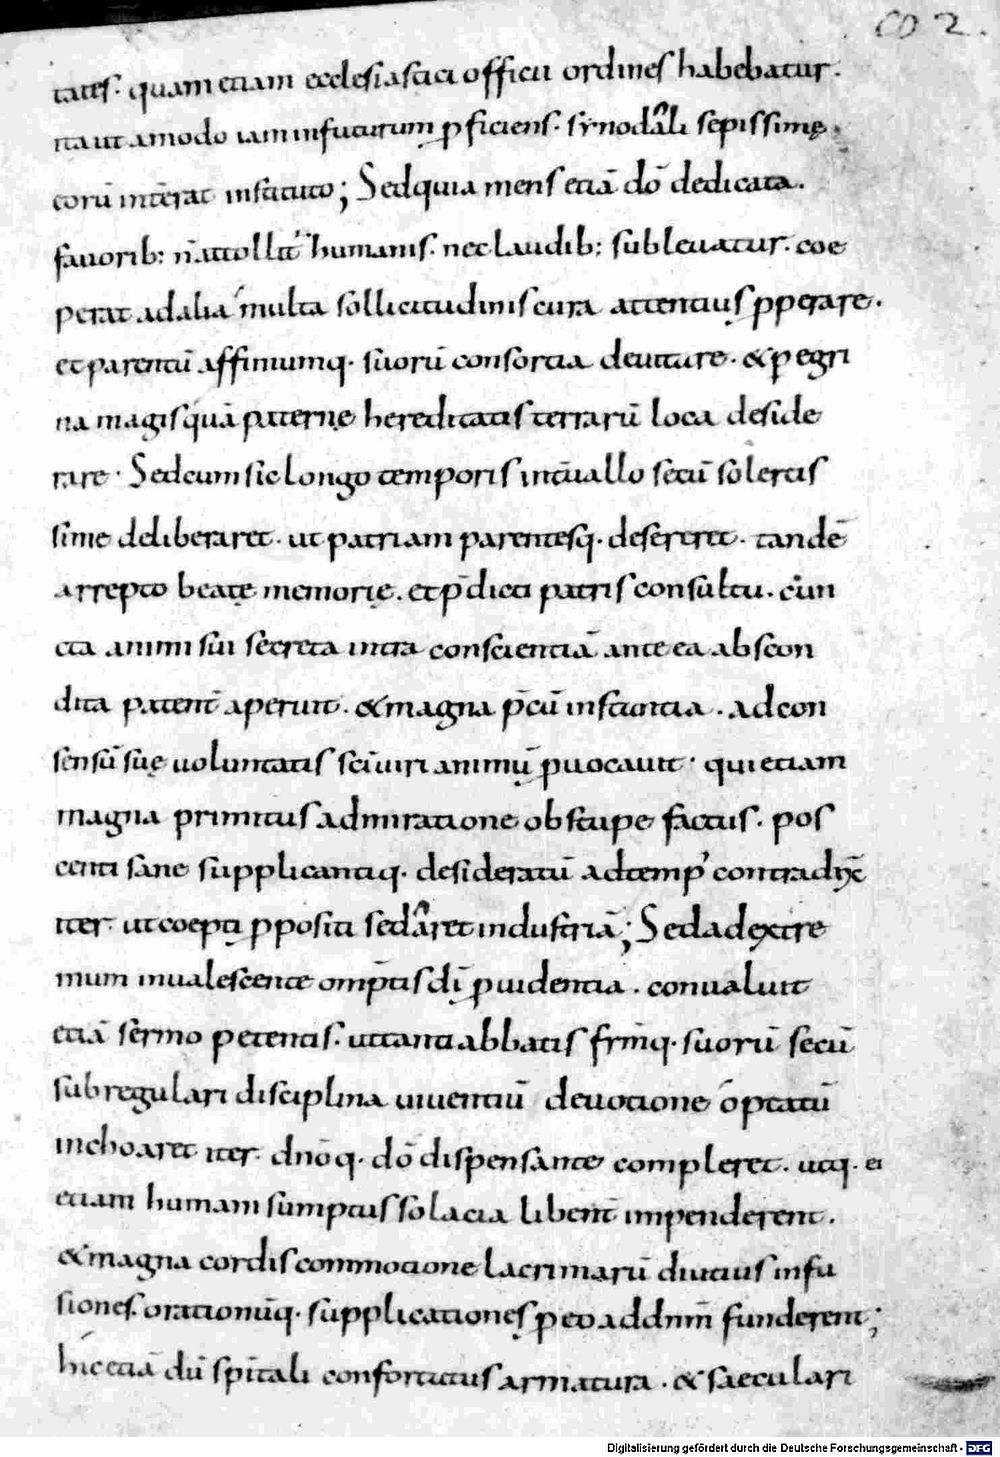 CO 2.
tates. quam etiam ecclesiastici officii ordines habebatur.
ita ut amodo iam infuturum ꝓficiens. synodali sepissimę.
eorū intērat instituto; Sed quia mens etiā dō dedicata.
fauorib: n̄ attollit̄ humanis. nec laudib: subleuatur. coe
perat ad alia multa sollicitudinis cura attentius ꝓperare.
et parentū affiniumq. suorū consortia deuitare. & p̲egri
na magis quā paternę hereditatis terrarū loca deside
rare. Sed cum sic longo temporis int̄uallo secū solertis
sime deliberaret. ut patriam parentesq. desereret. tandē
arrepto beatę memorię. et p̄dicti patris consultu. cun
cta animi sui secreta intra conscientiā antea abscon
dita patent̄ aperuit. & magna p̄cū instantia. ad con
sensū suę uoluntatis sc̄i uiri animū ꝓuocauit. qui etiam
magna primitus admiratione obstupefactus. pos
centi sane supplicantiq. desideratū ad temp' contradix̄
iter. ut coepti ꝓpositi sedaret industriā; Sed ad extre
mum inualescente omp̄tis dī ꝓuidentia. conualuit
etiā sermo petentis. ut tanti abbatis fr̄mq. suorū secū
sub regulari disciplina uiuentiū deuotione optatū
inchoaret iter. dn̄oq. dō dispensante compleret. utq. ei
etiam humani sumptus solacia libent̄ impenderent.
& magna cordis commotione lacrimarū diutius infu
siones. orationūq. supplicationes p̲ eo ad dn̄m funderent;
hic etiā dū sp̄itali confortatus armatura. & saeculari
Digitalisierung gefördert durch die Deutsche Forschungsgemeinschaft - DFG